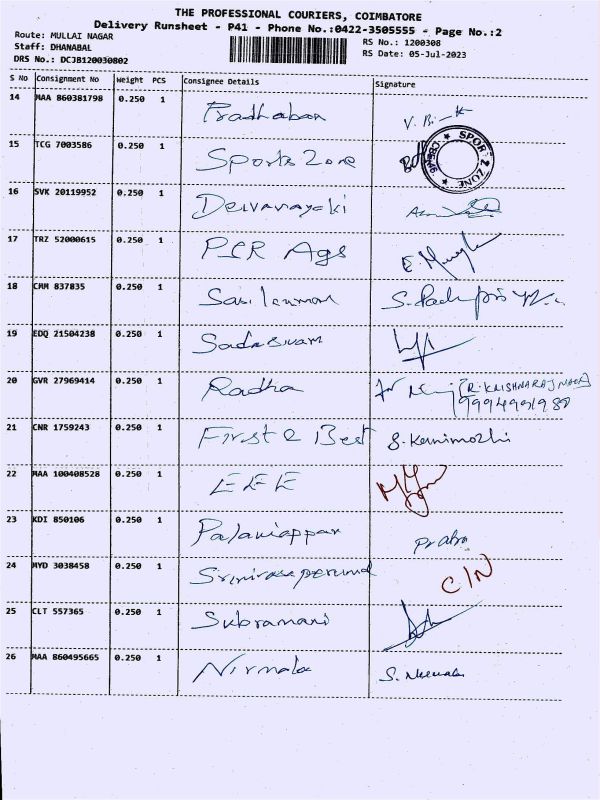 THE PROFESSIONAL COURIERS, COIMBATORE
Delivery Runsheet - P41 - Phone No.:0422-3505555 - Page No.:2
Route: MULLAI NAGAR
Staff: DHANABAL
DRS No.: DCJB120030802
RS No.: 1200308
RS Date: 05-Jul-2023
S No Consignment No Weight PCS Consignee Details Signature
14 MAA 860381798 0.250 1 Pradhaban
15 TCG 7003586 0.250 1 Sports Zone SPORTZ ZONE
16 SVK 20119952 0.250 1 Deivanayaki
17 TRZ 52000615 0.250 1 PSR Ags
18 CMM 837835 0.250 1
19 EDQ 21504238 0.250 1 Sadasivam
20 GVR 27969414 0.250 1 Radha for
21 CNR 1759243 0.250 1 First & Best S. Kanimozhi
22 MAA 100408528 0.250 1 EEE
23 KDI 850106 0.250 1 Palaniappan Prabu
24 MYD 3038458 0.250 1 Srinivasaperumal C/N
25 CLT 557365 0.250 1 Subramani
26 MAA 860495665 0.250 1 Nirmala